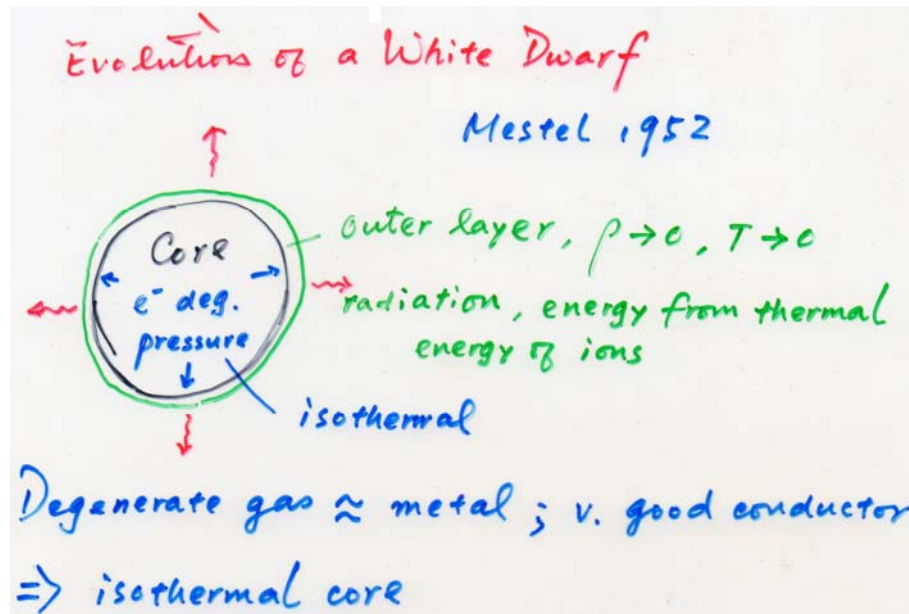 Evolution of a White Dwarf
Mestel 1952
Core
e⁻ deg.
pressure
outer layer, ρ→0, T→0
radiation, energy from thermal
energy of ions
isothermal
Degenerate gas ≈ metal ; v. good conductor
=> isothermal core